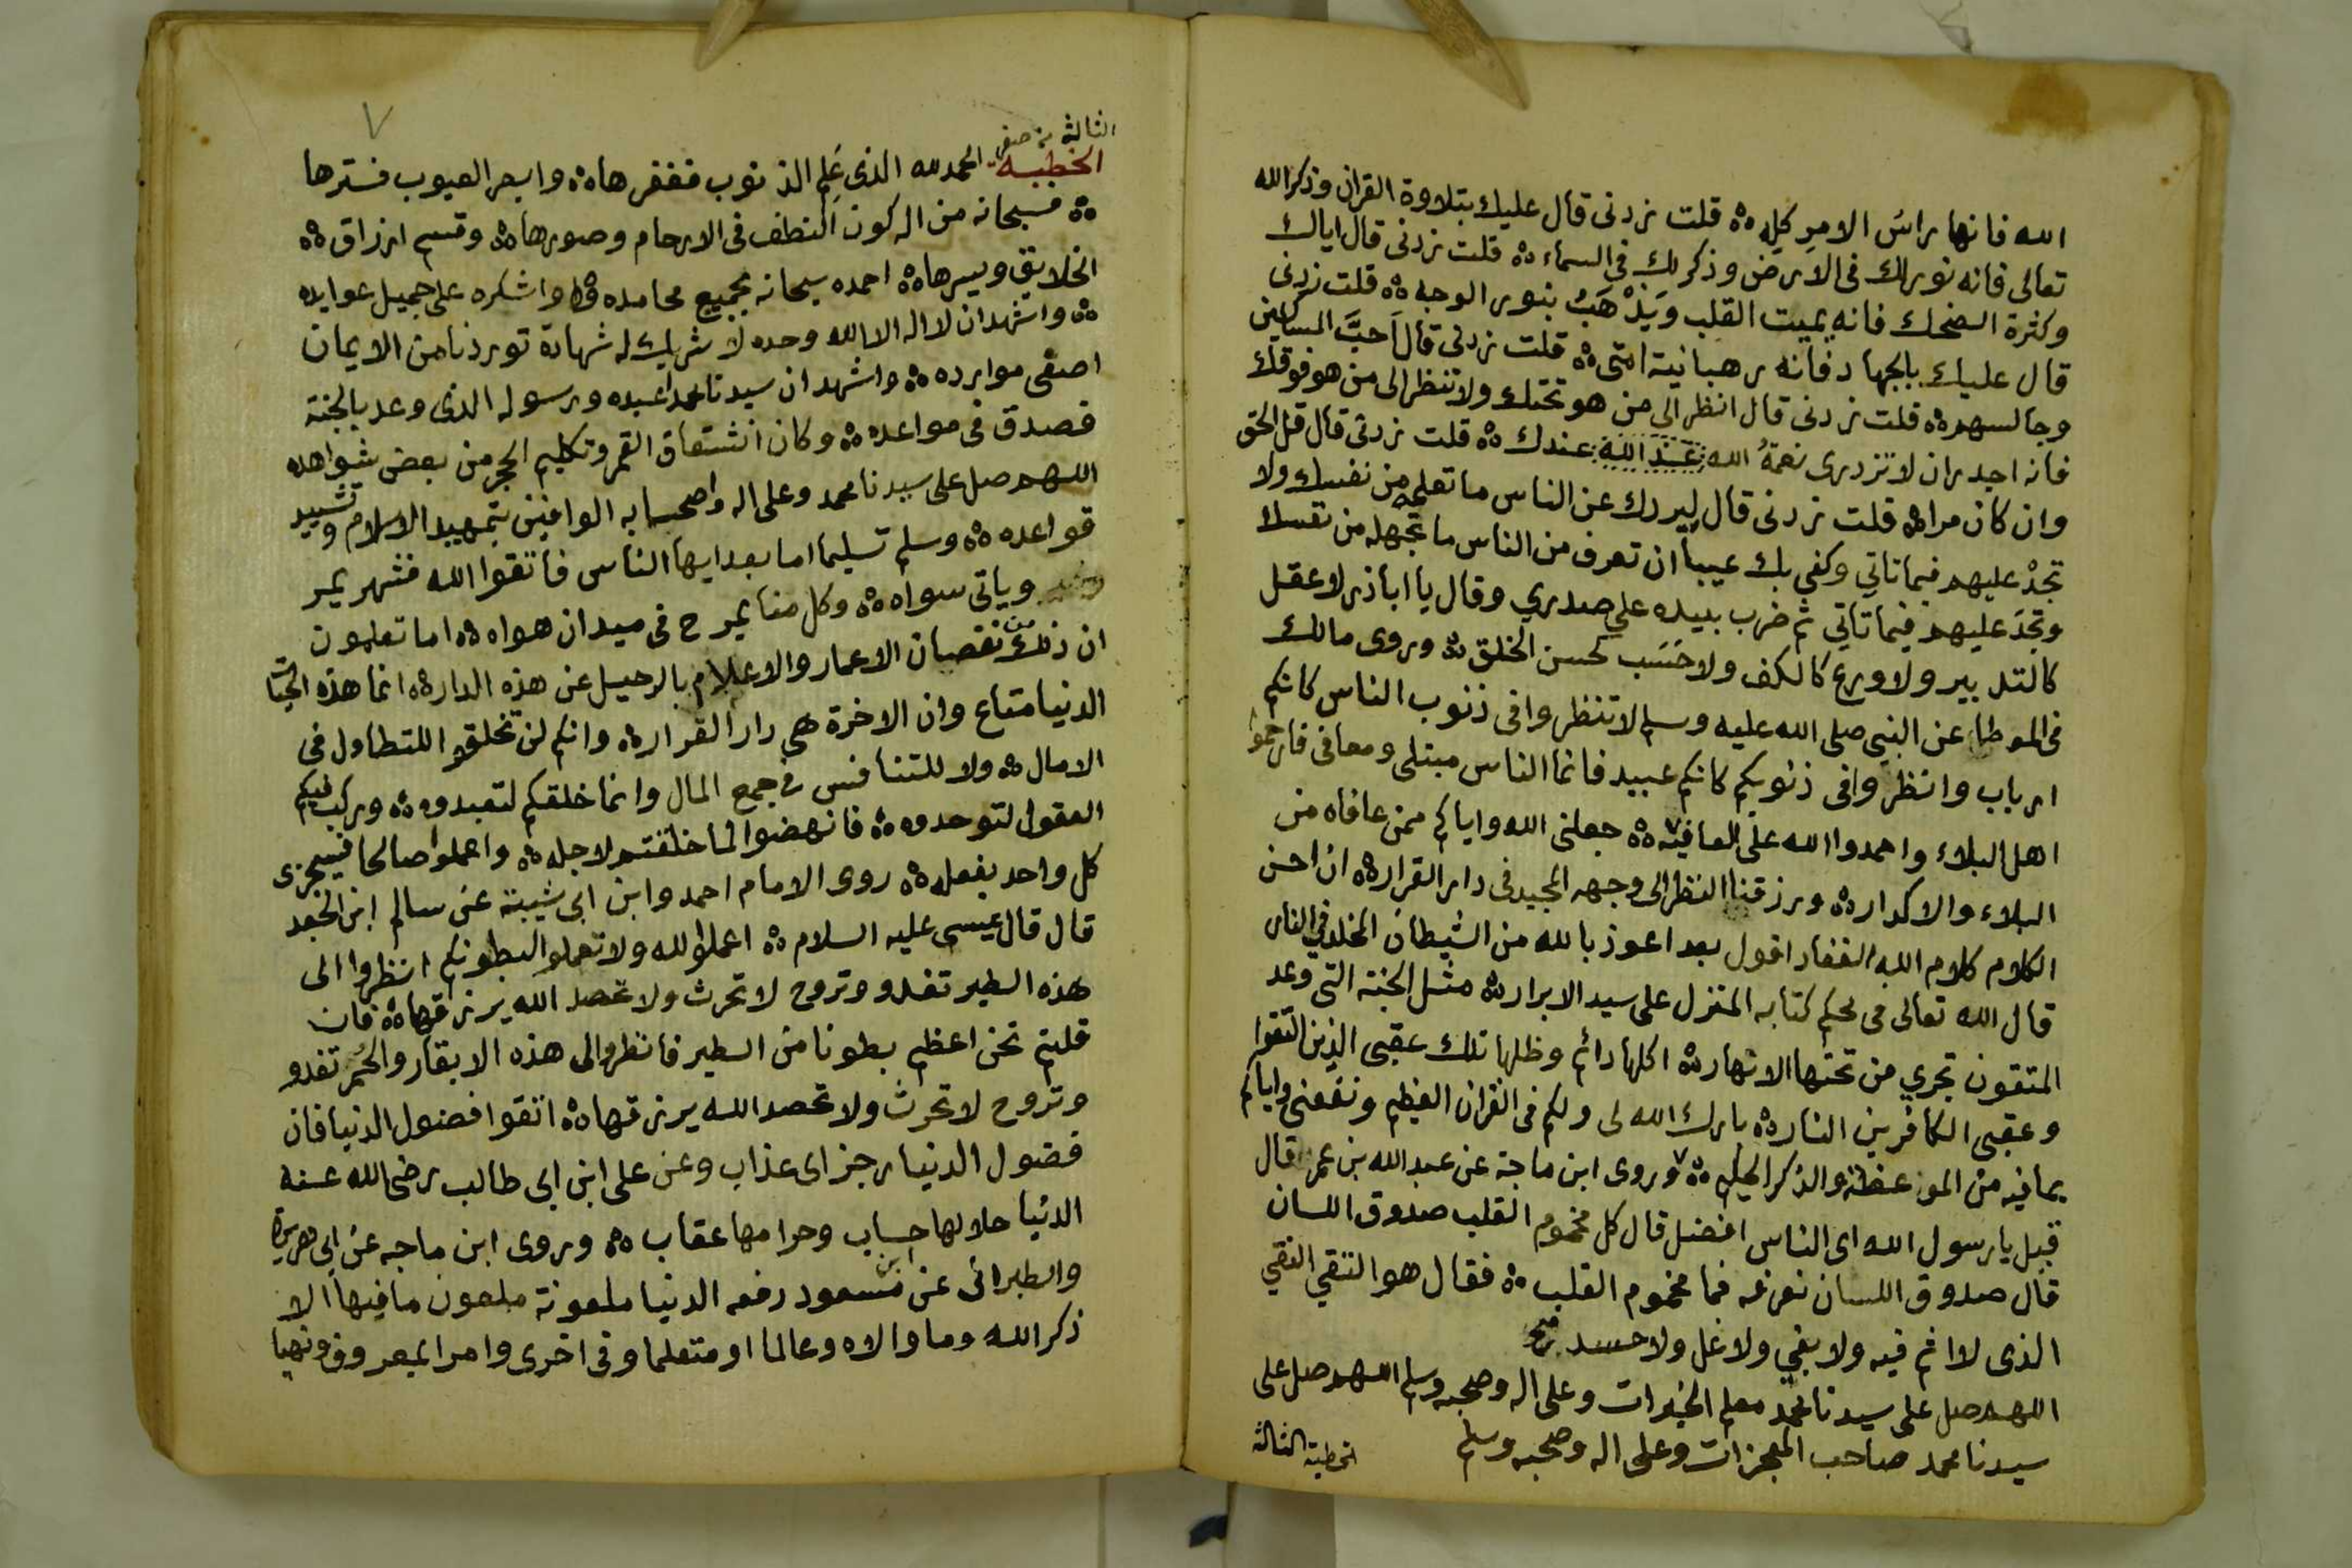 الله فانها راسُ الامرِ كلِه قلت زدنى قال عليك بتلاوة القران وذكر الله
تعالى فانه نور لك فى الارض وذكر لك فى السماء قلت زدنى قال اياك
وكثرة الضحك فانه يميت القلب ويَذْهَبُ بنور الوجه قلت زدنى
قال عليك بالجهاد فانه رهبانية امتى قلت زدنى قال اَحبَّ المساكين
وجالسهم قلت زدنى قال انظر الى من هو تحتك ولا تنظر الى من هو فوقك
فانه اجدر ان لا تزدرى نعمةُ الله عند الله عندك قلت زدنى قال قل الحق
وان كان مرا قلت زدنى قال ليردك عن الناس ما تعلمه من نفسك ولا
تجدْ عليهم فيما تاتي وكفى بك عيبا ان تعرف من الناس ما تجهله من نفسك
وتجدَ عليهم فيما تاتي ثم ضرب بيده على صدري وقال يا ابا ذر لا عقل
كالتدبير ولا ورع كالكف ولا حَسَب كحسن الخلق وروى مالك
فى الموطا عن النبي صلى الله عليه وسلم لا تنظروا فى ذنوب الناس كانكم
ارباب وانظروا فى ذنوبكم كانكم عبيد فانما الناس مبتلى ومعافى فارحموا
اهل البلاء واحمدوا الله على العافية جعلنى الله واياكم ممن عافاه من
البلاء والاكدار ورزقنا النظر الى وجهه المجيد فى دار القرار ان احسن
الكلام كلام الله الغفار اقول بعد اعوذ بالله من الشيطان المخلد فى النار
قال الله تعالى فى محكم كتابه المنزل على سيد الابرار مثل الجنة التى وعد
المتقون تجري من تحتها الانهار اكلها دائم وظلها تلك عقبى الذين اتقوا
وعقبى الكافرين النار بارك الله لى ولكم فى القران العظيم ونفعنى واياكم
بما فيه من الموعظة والذكر الحكيم وروى ابن ماجة عن عبد الله بن عمر قال
قيل يا رسول الله اى الناس افضل قال كل مخموم القلب صدوق اللسان
قال صدوق اللسان نعرفه فما مخموم القلب فقال هو التقي النقي
الذى لا اثم فيه ولا بغي ولا غل ولا حسد
اللهم صل على سيدنا محمد معلم الخيرات وعلى اله وصحبه وسلم اللهم صل على
سيدنا محمد صاحب المعجزات وعلى اله وصحبه وسلم
الخطبة الثالثة
٧
الثالثة من صفر
الخطبة الحمد لله الذى عَلِم الذنوب فغفرها وابصر العيوب فسترها
فسبحانه من اله كون النطف فى الارحام وصورها وقسم ارزاق
الخلايق ويسرها احمده سبحانه بجميع محامده واشكره على جميل عوايده
واشهد ان لا اله الا الله وحده لا شريك له شهادة توردنا من الايمان
اصفى موارده واشهد ان سيدنا محمدا عبده ورسوله الذى وعد بالجنة
فصدق فى مواعده وكان انشقاق القمر وتكليم الحجر من بعض شواهده
اللهم صل على سيدنا محمد وعلى اله واصحابه الوافين بتمهيد الاسلام وتشييد
قواعده وسلم تسليما اما بعد ايها الناس فاتقوا الله فشهر يمر
ويأتى سواه وكل منا يمرح فى ميدان هواه اما تعلمون
ان ذلك من نقصان الاعمار والاعلام بالرحيل عن هذه الدار انما هذه الحياة
الدنيا متاع وان الاخرة هى دار القرار وانكم لن تخلقوا للتطاول فى
الامال ولا للتنافس فى جمع المال وانما خلقكم لتعبدوه وركب فيكم
العقول لتوحدوه فانهضوا لما خلقتم لاجله واعملوا صالحا فسيجزى
كل واحد بفعله روى الامام احمد وابن ابى شيبة عن سالم ابن الجعد
قال قال عيسى عليه السلام اعملوا لله ولا تعملوا لبطونكم انظروا الى
هذه الطير تغدو وتروح لا تحرث ولا تحصد الله يرزقها فان
قلتم نحن اعظم بطونا من الطير فانظروا الى هذه الابقار والحُمر تغدو
وتروح لا تحرث ولا تحصد الله يرزقها اتقوا فضول الدنيا فان
فضول الدنيا رجز اى عذاب وعن على ابن ابى طالب رضى الله عنه
الدنيا حلالها حساب وحرامها عقاب وروى ابن ماجه عن ابى هريرة
والطبرانى عن ابن مسعود رفعه الدنيا ملعونة ملعون ما فيها الا
ذكر الله وما والاه وعالما او متعلما وفى اخرى وامرا بمعروف ونهيا